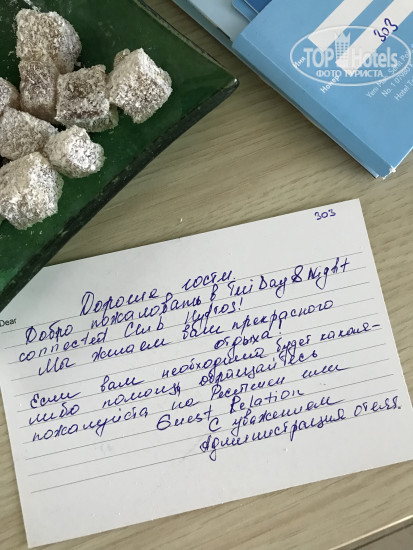 303
TOP Hotels
ФОТО ТУРИСТА
303
Dear
Дорогие гости.
Добро пожаловать в Tui Day & Night
connected Club Hydros!
Мы желаем вам прекрасного
отдыха.
Если вам необходима будет какая-
либо помощь, обращайтесь
пожалуйста на Ресепшен или
Guest Relation
С уважением
Администрация отеля.